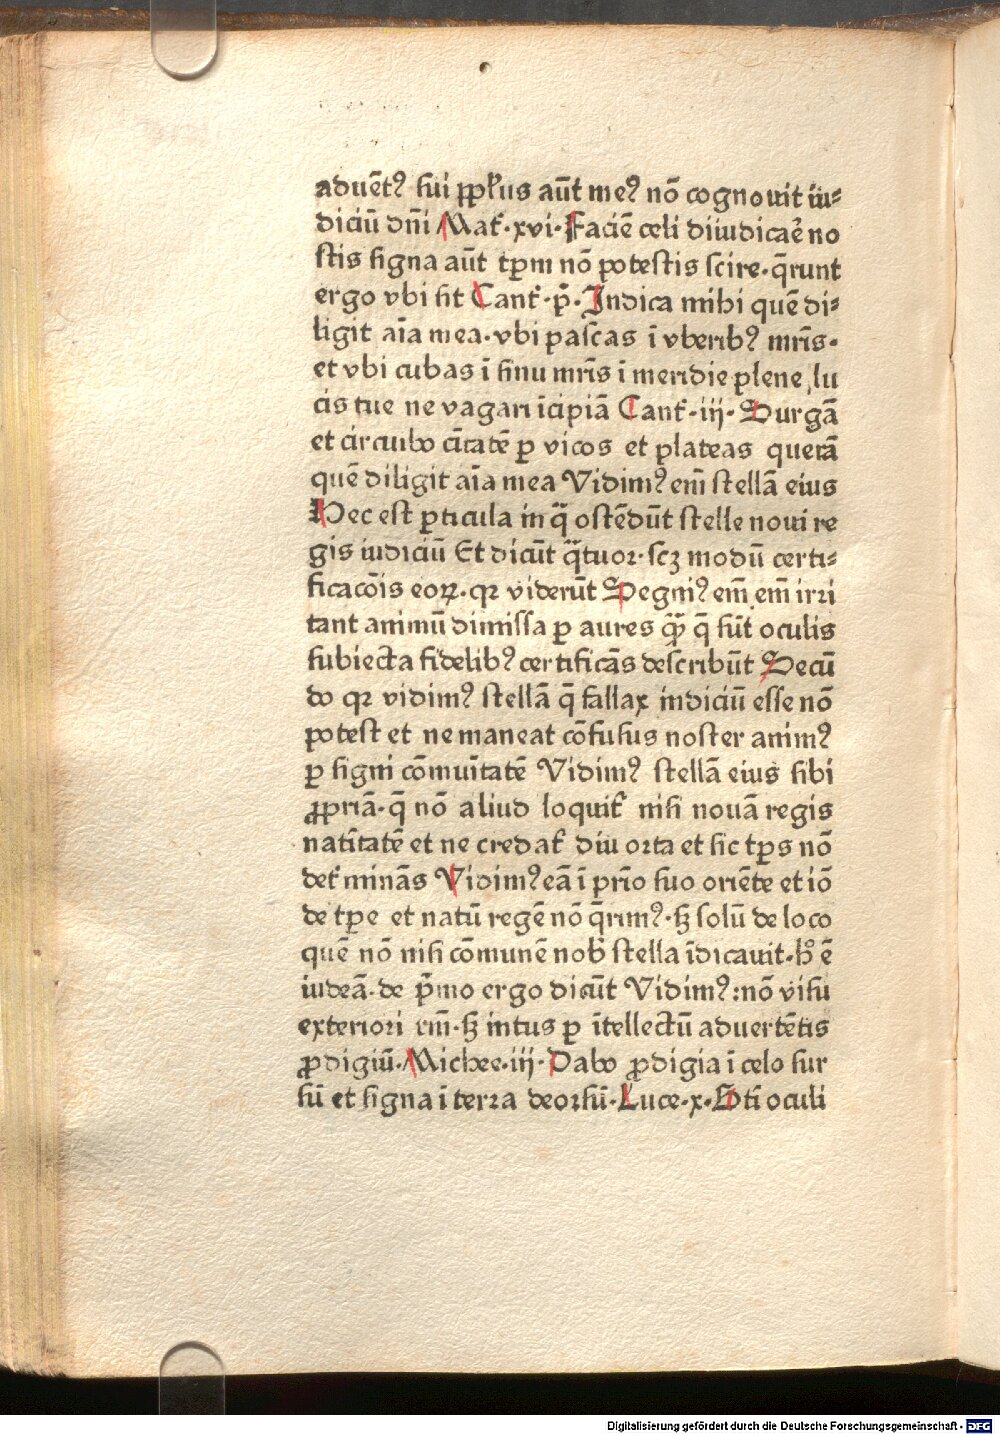 aduēt⁹ sui ppl'us aūt me⁹ nō cognouit iu⸗
diciū dn̄i Mat̄·xvi·Faciē celi diiudicaꝛ̄ no
stis signa aūt tꝑm nō potestis scire·q̄runt
ergo vbi sit Cant̄·p̄·Indica mihi quē di⸗
ligit aīa mea·vbi pascas ī vberib⁹ mr̄is·
et vbi cubas ī sinu mr̄is ī meridie plene lu
cis tue ne vagari īcipiā Cant̄·iij·Surgā
et circuibo cītatē ꝑ vicos et plateas querā
quē diligit aīa mea Vidim⁹ em̄ stellā eius
Hec est ꝑticula in q̄ ostēdūt stelle noui re
gis iudiciū Et dicūt q̄tuor·scꝫ modū certi⸗
ficacōis eoꝝ·qꝛ viderūt Segni⁹ em̄ em̄ irri
tant animū dimissa ꝑ aures q̄ꝫ q̄ sūt oculis
subiecta fidelib⁹ certificās describūt Secū
do qꝛ vidim⁹ stellā q̄ fallax indiciū esse nō
potest et ne maneat cōfusus noster anim⁹
ꝑ signi cōmuītatē Vidim⁹ stellā eius sibi
ꝓpriā·q̄ nō aliud loquit̄ nisi nouā regis
natītatē et ne credat̄ diu orta et sic tꝑs nō
det̄minās Vidim⁹ eā ī prīo suo oriēte et iō
de tꝑe et natū regē nō q̄rim⁹·sꝫ solū de loco
quē nō nisi cōmunē nob̄ stella īdicauit·h° ē
iudeā·de p̄mo ergo dicūt Vidim⁹:nō visu
exteriori tm̄·sꝫ intus ꝑ ītellectū aduertētis
ꝓdigiū·Michee·iij·Dabo ꝓdigia ī celo sur
sū et signa ī terra deorsū·Luce·x·Bti oculi
Digitalisierung gefördert durch die Deutsche Forschungsgemeinschaft - DFG